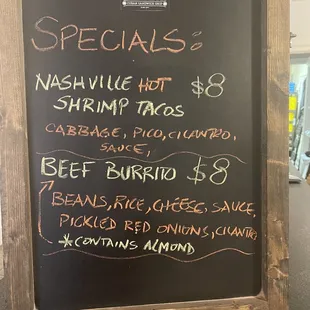 SPECIALS:
NASHVILLE HOT $8
SHRIMP TACOS
CABBAGE, PICO, CILANTRO,
SAUCE,
BEEF BURRITO $8
BEANS, RICE, CHEESE, SAUCE,
PICKLED RED ONIONS, CILANTRO
*CONTAINS ALMOND